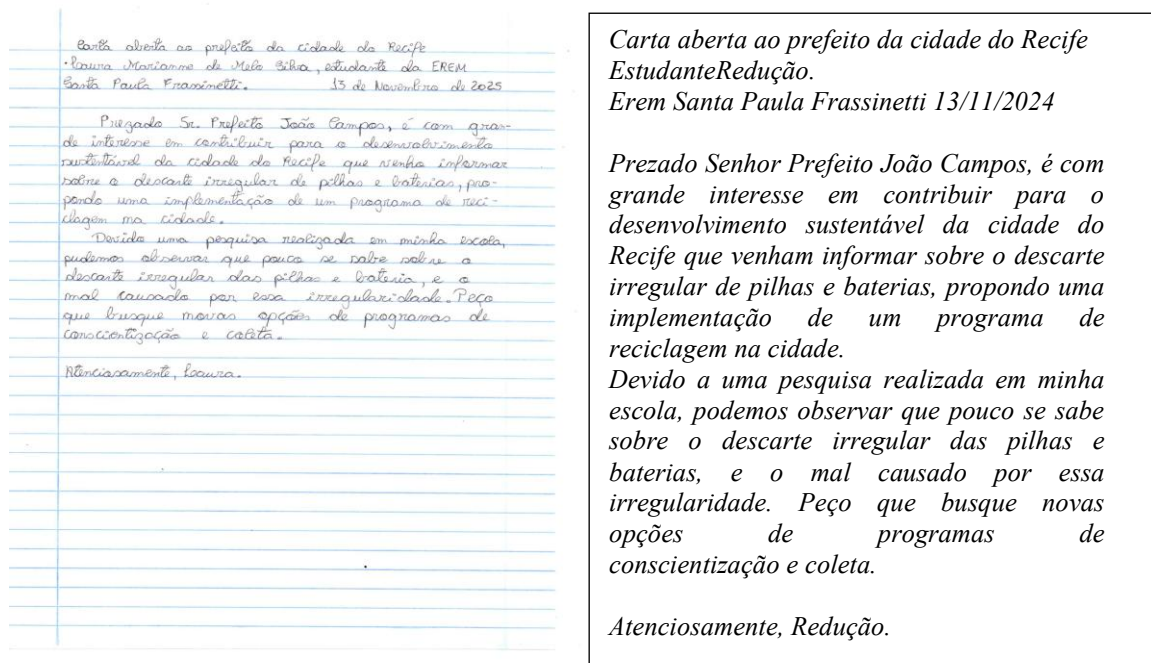 Carta aberta ao prefeito da cidade do Recife
·Laura Marianne de Melo Silva, estudante da EREM
Santa Paula Frassinetti. 13 de Novembro de 2025
Prezado Sr. Prefeito João Campos, é com gran-
de interesse em contribuir para o desenvolvimento
sustentável da cidade do Recife que venho informar
sobre o descarte irregular de pilhas e baterias, pro-
pondo uma implementação de um programa de reci-
clagem na cidade.
Devido uma pesquisa realizada em minha escola,
pudemos observar que pouco se sabe sobre o
descarte irregular das pilhas e bateria, e o
mal causado por essa irregularidade. Peço
que busque novas opções de programas de
conscientização e coleta.
Atenciosamente, Laura.
Carta aberta ao prefeito da cidade do Recife
EstudanteRedução.
Erem Santa Paula Frassinetti 13/11/2024
Prezado Senhor Prefeito João Campos, é com
grande interesse em contribuir para o
desenvolvimento sustentável da cidade do
Recife que venham informar sobre o descarte
irregular de pilhas e baterias, propondo uma
implementação de um programa de
reciclagem na cidade.
Devido a uma pesquisa realizada em minha
escola, podemos observar que pouco se sabe
sobre o descarte irregular das pilhas e
baterias, e o mal causado por essa
irregularidade. Peço que busque novas
opções de programas de
conscientização e coleta.
Atenciosamente, Redução.